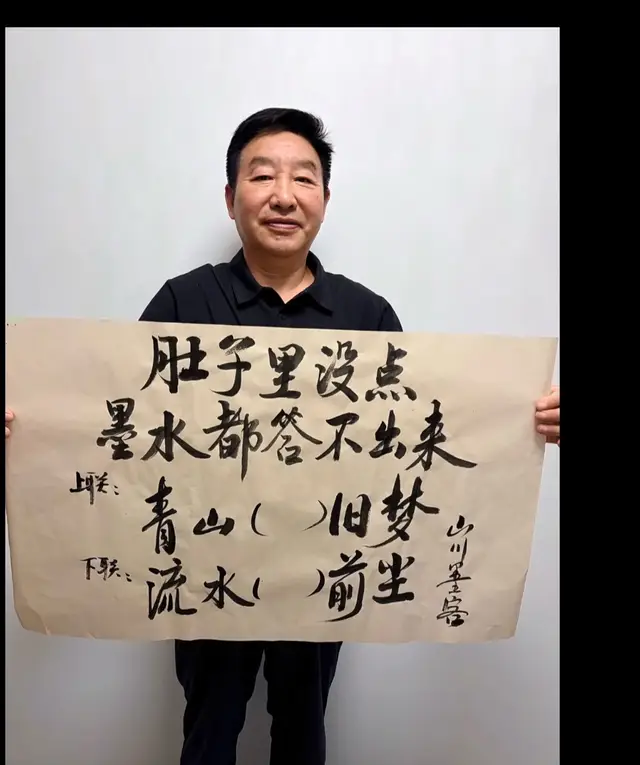 肚子里没点
墨水都答不出来
上联：青山（ ）旧梦
下联：流水（ ）前尘
山川墨客